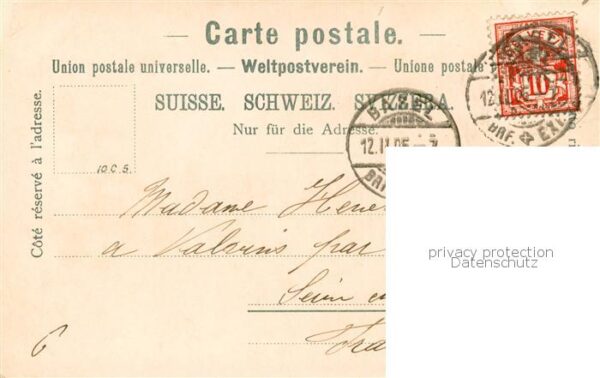 — Carte postale. —
Union postale universelle. — Weltpostverein. — Unione postale
SUISSE. SCHWEIZ. SVIZZERA.
Nur für die Adresse.
Côté réservé à l'adresse.
10 C 5.
BASEL
12.II.05
10
EXP
BRF.
Madame
a Valvins par
privacy protection
Datenschutz
6